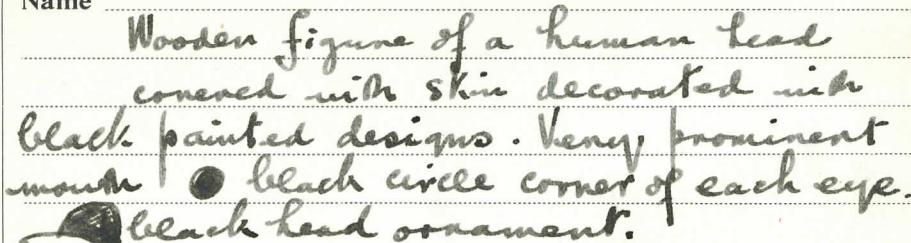 Name
Wooden figure of a human head
covered with skin decorated with
black painted designs. Very prominent
mouth black circle corner of each eye.
black head ornament.